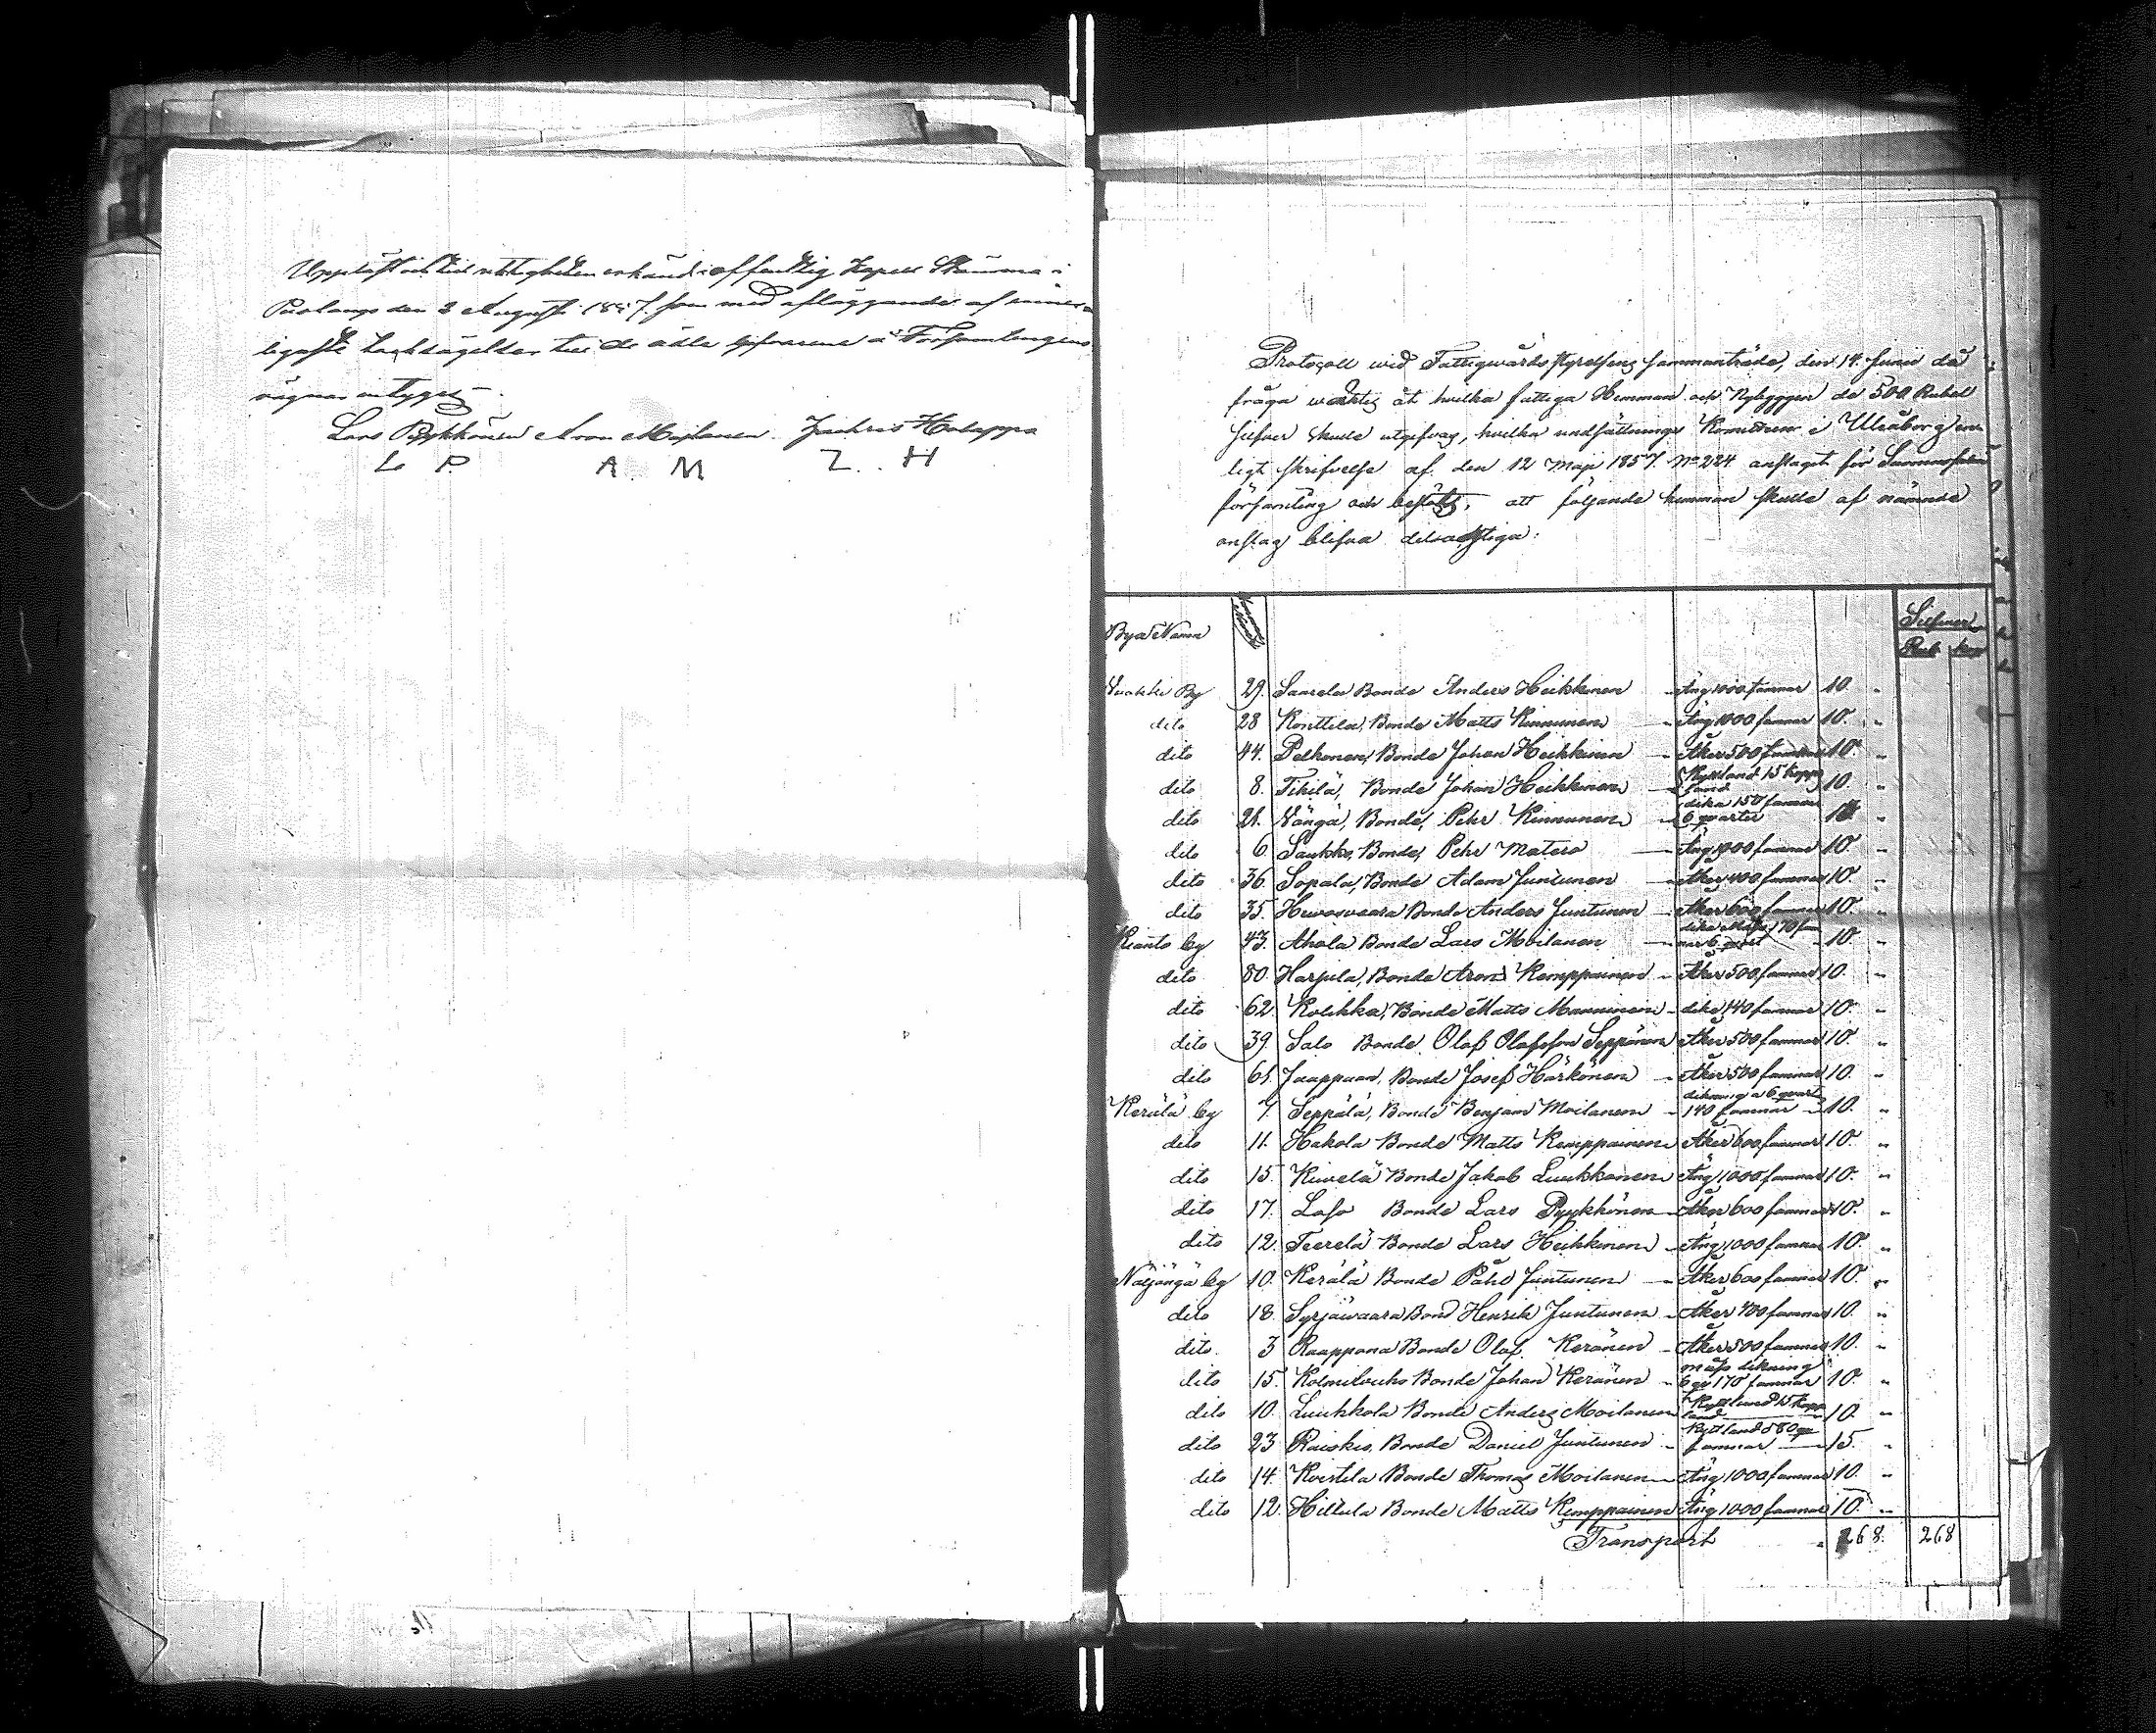 Uppläst och till riktigheten erkänd i offentlig Kapell Stämma i
Puolango den 2 Augusti 1857. som med afläggande af inner-
ligaste tacksägelser till de ädle gifvarene å Församlingens
vägnar intygas
Lars Pyykkönen Aron Moilanen. Zachris Holappa
L P. A M Z. H
Protocoll wid Fattigwårds styrelsens sammanträde, den 14. Junii då
fråga war åt hvilka fattiga Hemman och Nybyggen de 500 Rubel
Silfver skulle utgifvas, hvilka undsättnings Komitéen i Uleåborg en-
ligt skrifvelse af den 12 Maji 1857. No 224 anslaget för Suomussalmi
församling och beslöts, att följande hemman skulle af nämnde
anslag blifva delaktiga:
Byа Namn
Silfver
Rub. kop
Vuokki By 29. Saarela Bonde Anders Heikkinen Äng 1000 famnar 10. "
dito 28 Konttila, Bonde Matts Kinnunen Äng 1000 famnar 10. "
dito 44. Pelkonen, Bonde Johan Heikkinen Åker 500 famnar 10. "
dito 8. Tikilä, Bonde Johan Heikkinen Kyttland 15 kapp land 10. "
dito 21. Vängä, Bonde, Pehr Kinnunen dika 150 famnar 6 quarter "
dito 6 Saukko, Bonde, Pehr Matero Äng 1000 famnar 10. "
dito 36. Sopala, Bonde Adam Juntunen Åker 400 famnar 10. "
dito 35. Hevosvaara Bonde Anders Juntunen Åker 600 famnar 10. "
Kianto by 43. Ahola Bonde Lars Moilanen dika 170 famnar 6 quart 10. "
dito 80. Harjula, Bonde Aron Kemppainen Åker 500 famnar 10. "
dito 62. Kolikka, Bonde Matts Manninen dike 140 famnar 10. "
dito 39. Salo Bonde Olof Olofsson Seppänen Åker 500 famnar 10. "
dito 61. Juuppaan, Bonde Josef Härkönen Åker 500 famnar 10. "
Kerälä by 7. Seppälä, Bonde Benjam Moilanen dikning a 6 quart 140 famnar 10. "
dito 11. Hakola Bonde Matts Kemppainen Åker 600 famnar 10. "
dito 15 Kivelä Bonde Jakob Luukkonen Äng 1000 famnar 10. "
dito 17. Laso Bonde Lars Pyykkönen Åker 600 famnar 10. "
dito 12. Teerelä Bonde Lars Heikkinen Äng 1000 famnar 10. "
Näljängä by 10. Kerälä Bonde Påhl Juntunen Åker 600 famnar 10. "
dito 18. Syrjäwaara Bond Henrik Juntunen Åker 400 famnar 10. "
dito. 3 Raappana Bonde Olof Keränen Åker 500 famnar 10. "
dito 15. Kolmilouko Bonde Johan Keränen måss dikning 6 qv 170 famnar 10. "
dito 10. Luukkola Bonde Anders Moilanen Kyttland 15 kapp land 10. "
dito 23 Raiskio, Bonde Daniel Juntunen Kyttland 580 qv famnar 15. "
dito 14. Kvistila Bonde Thomas Moilanen Äng 1000 famnar 10. "
dito 12. Hiltula Bonde Matts Kemppainen Äng 1000 famnar 10. "
Transport 268. 268